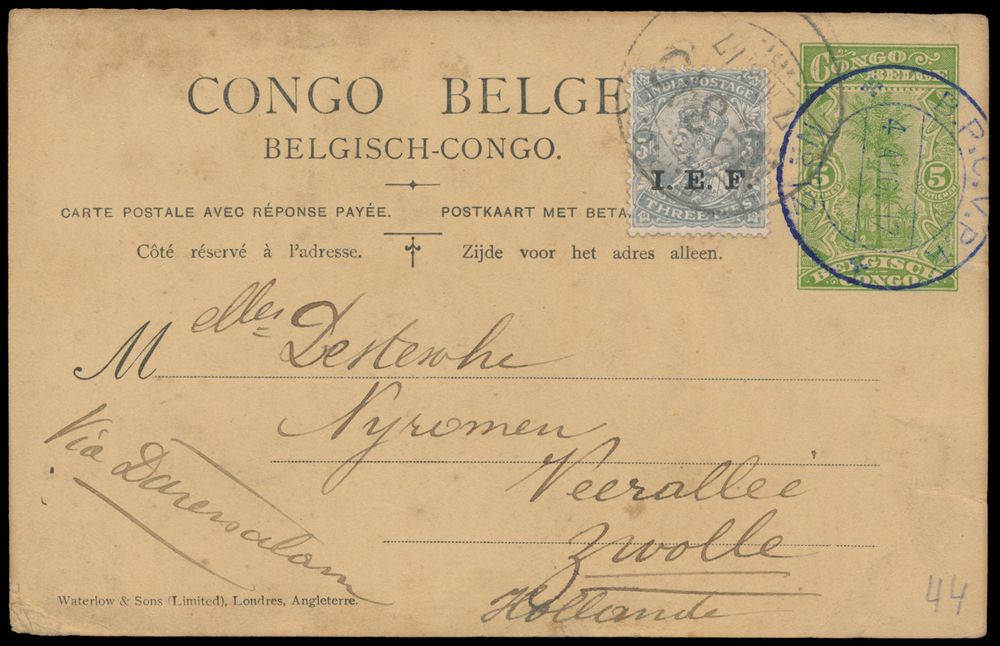 CONGO BELGE
BELGISCH-CONGO.
CARTE POSTALE AVEC RÉPONSE PAYÉE.
POSTKAART MET BETA
Côté réservé à l'adresse.
Zijde voor het adres alleen.
INDIA POSTAGE
3P
I. E. F.
THREE PIES
CONGO
BELGE
5 5
BELGISCH
CONGO
B.P.C.V.P. N
4 AUG
Melles Destesche
Nyromen
Veerallee
Zwolle
Hollande
Via Daresalam
Waterlow & Sons (Limited), Londres, Angleterre.
44